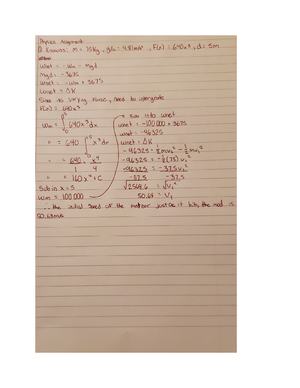 Physics Assignment
Knowns: m = 75kg, g = -9.81m/s², F(x) = 640x³, d = 5m
Wnet = -Wm - Mgd
Mgd = -3675
Wnet = -Wm + 3675
Wnet = ΔK
Since its varying force, need to intergrate
F(x) = 640x³
Wm = ∫ 640x³dx
" = 640 ∫ x³dx
" = 640 · x⁴
1 4
" = 160x⁴ + C
Sub in x = 5
Wm = 100 000
→ sub into wnet
wnet = -100 000 + 3675
wnet = -96325
wnet = ΔK
-96325 = ½mv₂² - ½mv₁²
-96325 = -½(75)v₁²
-96325 = -37.5v₁²
-37.5 -37.5
√2568.6 = √v₁²
50.68 = v₁
∴ the initial speed of the meteor just as it hits the mud is
50.68m/s